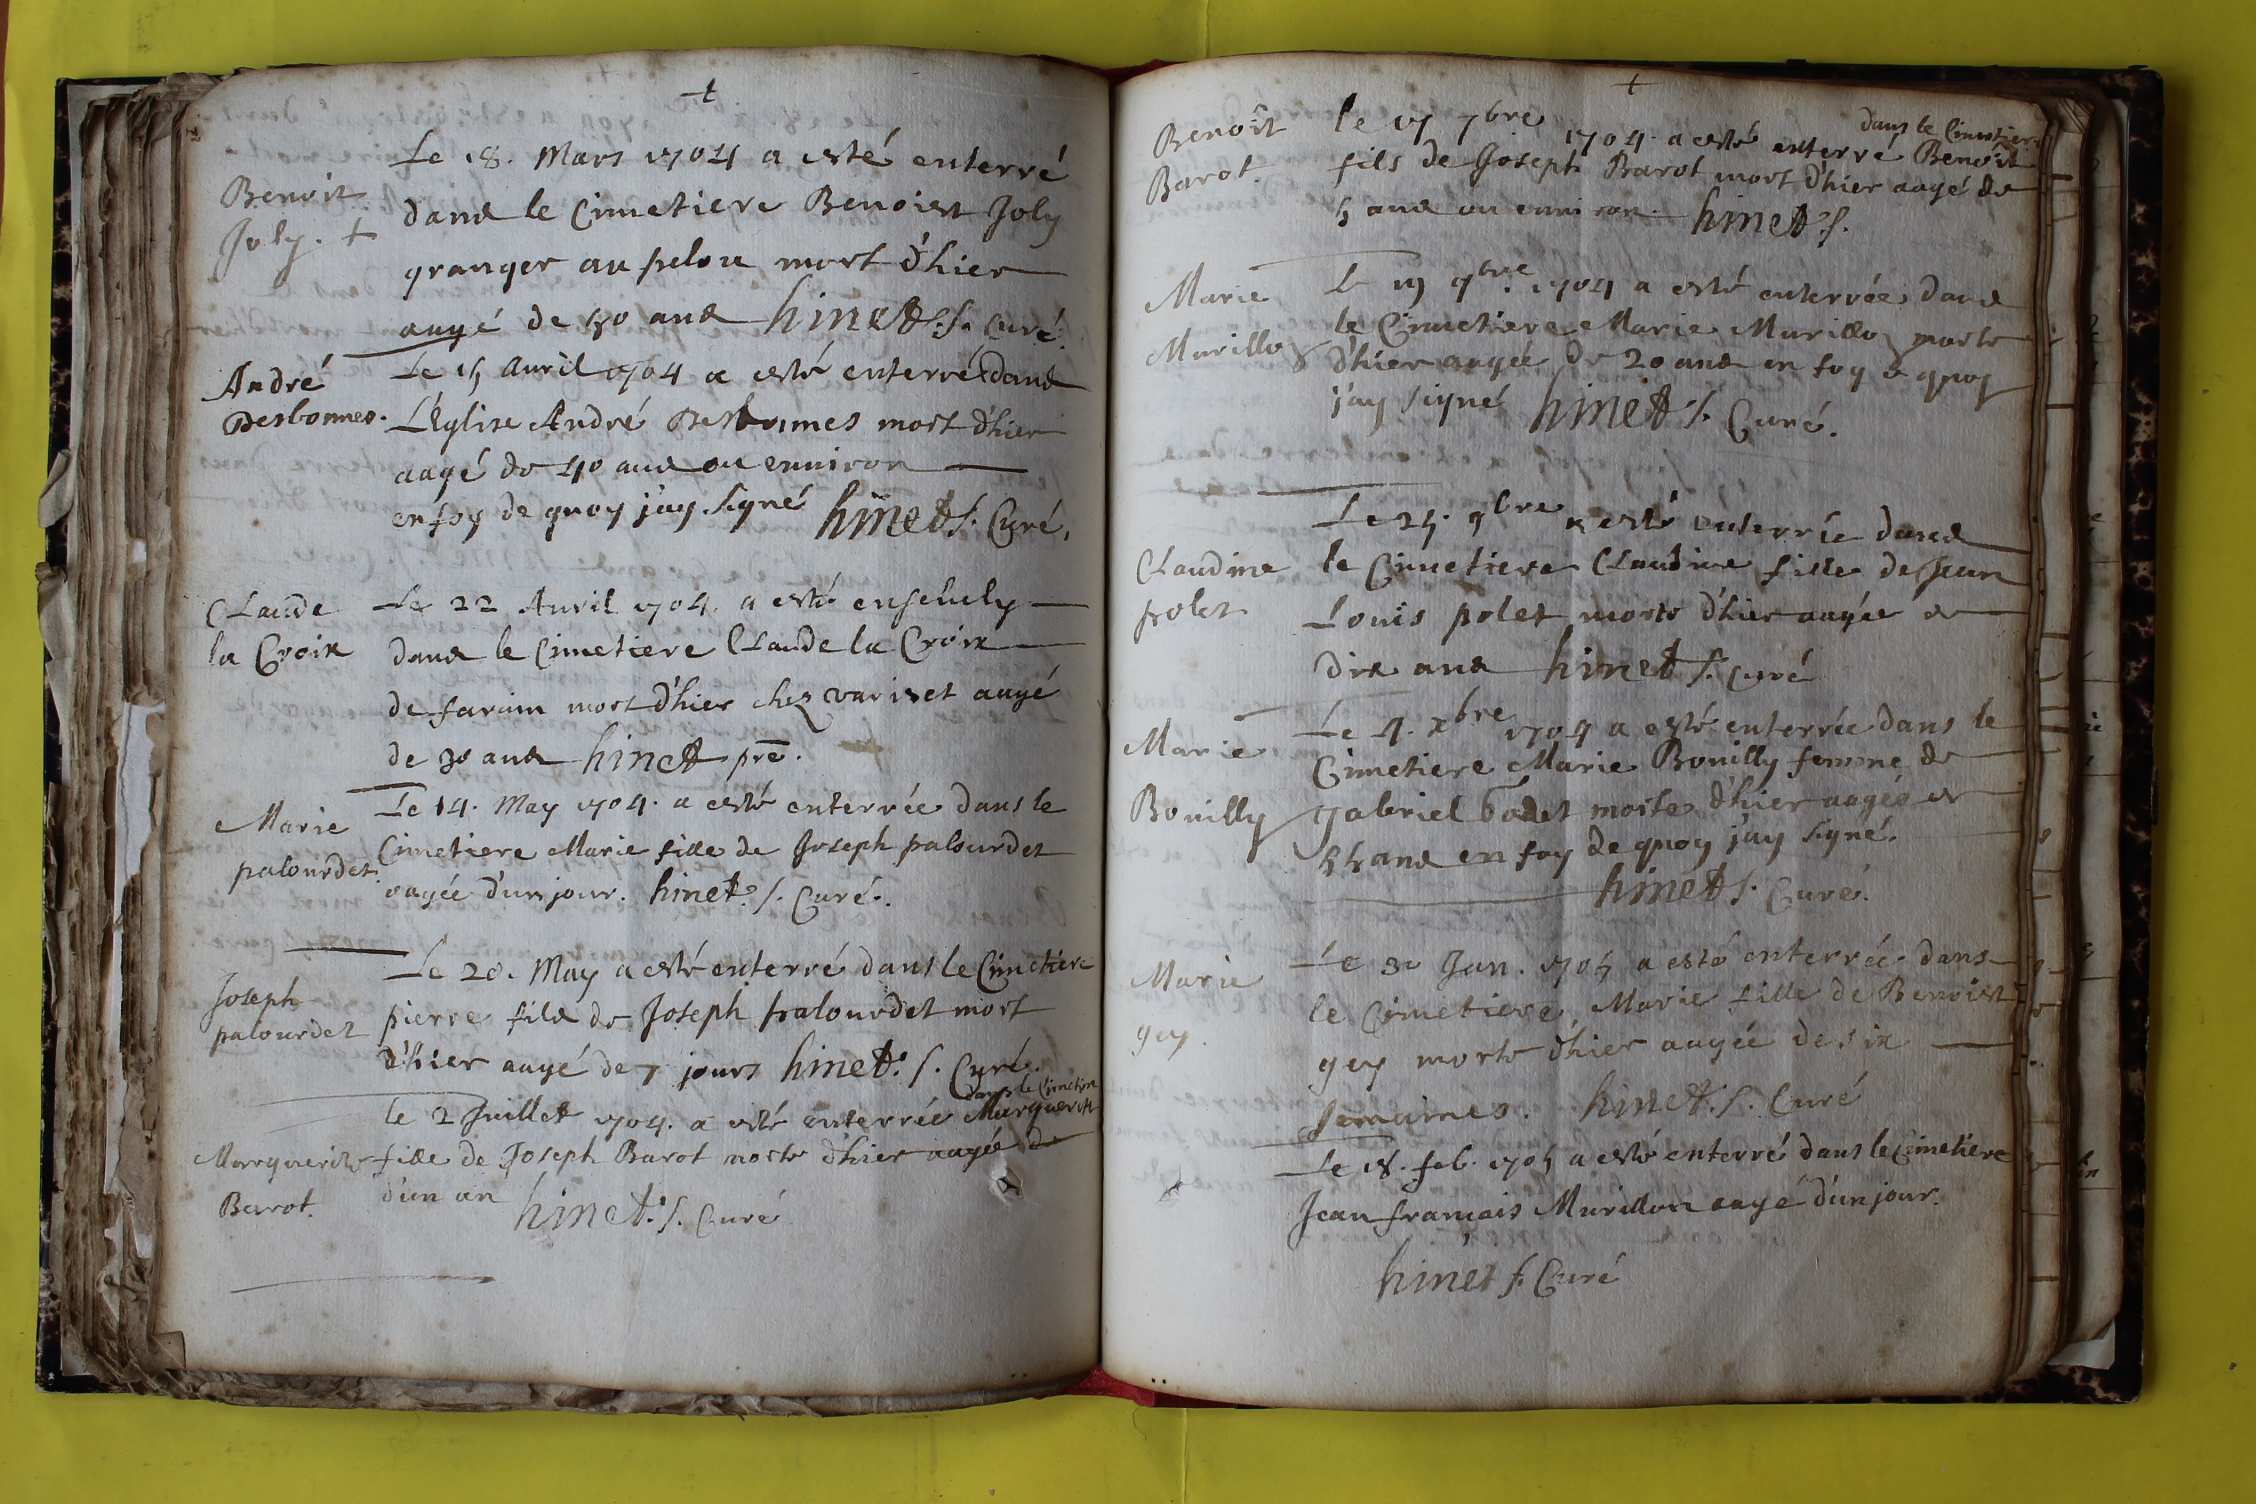 Benoit
Joly. +
Le 18. Mars 1704 a esté enterré
dans le Cimetiere Benoist Joly
granger au pelou mort d'hier
aagé de 50 ans hinet. s. Curé.
André
Desbonnes.
Le 15 Auril 1704 a esté enterré dans
L'Eglise André Desbonnes mort d'hier
aagé de 40 ans ou enuiron
en foy de quoy j'ay signé hinet s. Curé.
Claude
la Croix
Le 22 Auril 1704. a esté enseuely
dans le Cimetiere Claude la Croix
de mort d'hier chez aagé
de 30 ans hinet prē.
Marie
palourdet.
Le 14. May 1704. a esté enterrée dans le
Cimetiere Marie fille de Joseph palourdet
aagée d'un jour. hinet. s. Curé.
Joseph
palourdet
Le 20. May a esté enterré dans le Cimetiere
pierre fils de Joseph palourdet mort
d'hier aagé de 7 jours hinet. s. Curé.
Marguerite
Barot.
dans le Cimetiere
le 2 Juillet 1704. a esté enterrée Marguerite
fille de Joseph Barot morte d'hier aagée de
d'un an hinet. s. Curé
+
Benoît
Barot.
dans le Cimetiere
le 17 7bre 1704. a esté enterré Benoît
fils de Joseph Barot mort d'hier aagé de
5 ans ou enuiron. hinet. s.
Marie
Murilloz
Le 19 9bre. 1704 a esté enterrée dans
le Cimetiere Marie Murilloz morte
d'hier aagée de 20 ans en foy de quoy
j'ay signé hinet s. Curé.
Claudine
polet
Le 25. 9bre a esté enterrée dans
le Cimetiere Claudine fille de Jean
Louis polet morte d'hier aagée de
dix ans hinet s. Curé
Marie
Bouilly
Le 4. xbre 1704 a esté enterrée dans le
Cimetiere Marie Bouilly femme de
gabriel morte d'hier aagée de
55 ans en foy de quoy j'ay signé.
hinet s. Curé.
Marie
gey.
Le 30 Jan. 1705 a esté enterrée dans
le Cimetiere Marie fille de Benoist
gey morte d'hier aagée de six
semaines. hinet. s. Curé
Le 18. feb. 1705 a esté enterré dans le Cimetiere
Jean françois Murillon aagé d'un jour.
hinet s. Curé